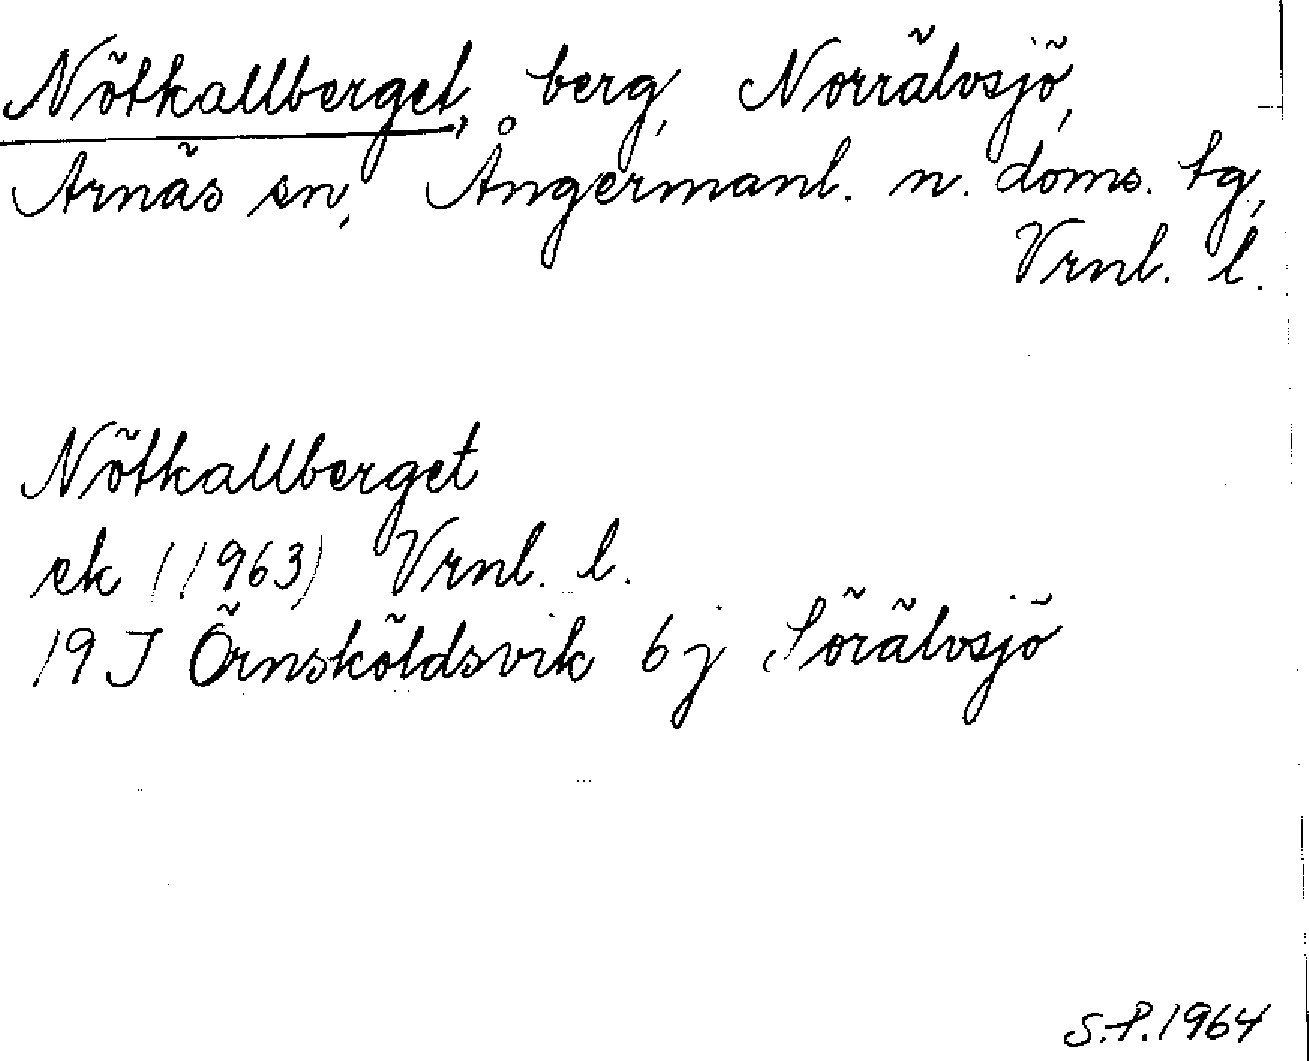 Nötkallberget, berg, Norrälvsjö,
Arnäs sn, Ångermanl. n. doms. tg,
Vrnl. l.
Nötkallberget
ek (1963) Vrnl. l.
19 J Örnsköldsvik 6 j Sörälvsjö
S.P. 1964